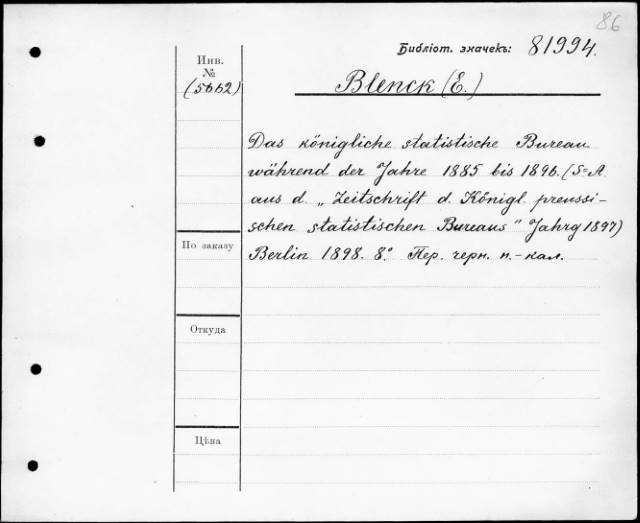 86
Библiот. значекъ: 81994.
Инв.
№
(5662)
Blenck (E.)
Das königliche statistische Bureau
während der Jahre 1885 bis 1896. (S=A.
aus d. „Zeitschrift d. Königl. preussi-
schen statistischen Bureaus" Jahrg 1897)
Berlin 1898. 8.° Пер. черн. п.-кал.
По заказу
Откуда
Цѣна